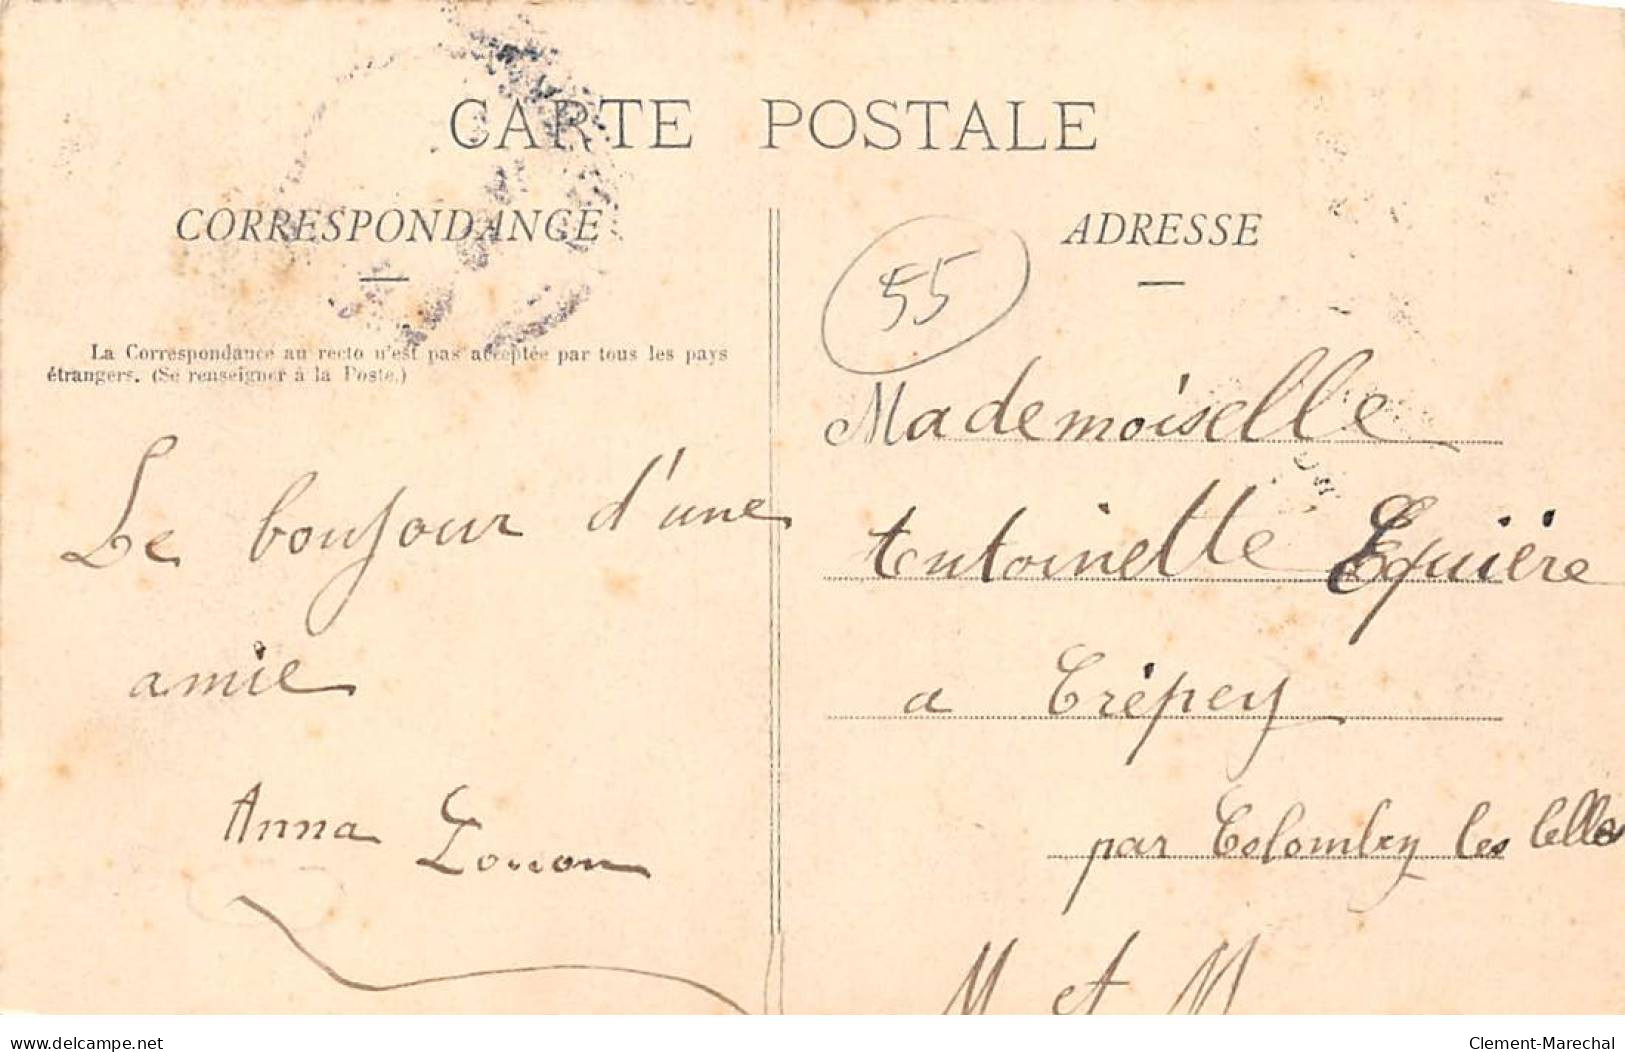 CARTE POSTALE
CORRESPONDANCE
ADRESSE
55
La Correspondance au recto n'est pas acceptée par tous les pays
étrangers. (Se renseigner à la Poste.)
Le bonjour d'une
amie
Anna
Mademoiselle
Antoinette Equière
a Crépey
par Colombey les belles
M et M
www.delcampe.net
Clement-Marechal